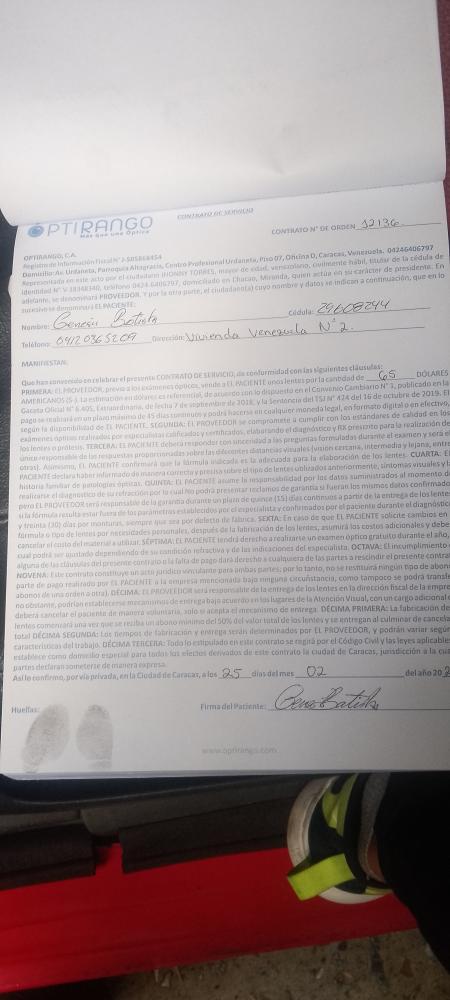 OPTIRANGO
Más que una Óptica
CONTRATO DE SERVICIO
CONTRATO N° DE ORDEN 12136
OPTIRANGO, C.A.
Registro de Información Fiscal N° J-505868454
Domicilio: Av. Urdaneta, Parroquia Altagracia, Centro Profesional Urdaneta, Piso 07, Oficina D, Caracas, Venezuela. 04246406797
Representada en este acto por el ciudadano JHONNY TORRES, mayor de edad, venezolano, civilmente hábil, titular de la cédula de
identidad N° V 18348340, teléfono 0424-6406797, domiciliado en Chacao, Miranda, quien actúa en su carácter de presidente. En
adelante, se denominará PROVEEDOR. Y por la otra parte, el ciudadano(a) cuyo nombre y datos se indican a continuación, que en lo
sucesivo se denominará EL PACIENTE:
Nombre: Batista Cédula: 29608244
Teléfono: 04120365209 Dirección: Vivienda Venezuela N° 2.
MANIFIESTAN:
Que han convenido en celebrar el presente CONTRATO DE SERVICIO, de conformidad con las siguientes cláusulas:
PRIMERA: EL PROVEEDOR, previo a los exámenes ópticos, vende a EL PACIENTE unos lentes por la cantidad de 65 DÓLARES
AMERICANOS ($-). La estimación en dólares es referencial, de acuerdo con lo dispuesto en el Convenio Cambiario N° 1, publicado en la
Gaceta Oficial N° 6.405, Extraordinaria, de fecha 7 de septiembre de 2018, y la Sentencia del TSJ N° 424 del 16 de octubre de 2019. El
pago se realizará en un plazo máximo de 45 días continuos y podrá hacerse en cualquier moneda legal, en formato digital o en efectivo,
según la disponibilidad de EL PACIENTE. SEGUNDA: EL PROVEEDOR se compromete a cumplir con los estándares de calidad en los
exámenes ópticos realizados por especialistas calificados y certificados, elaborando el diagnóstico y RX prescrito para la realización de
los lentes o prótesis. TERCERA: EL PACIENTE deberá responder con sinceridad a las preguntas formuladas durante el examen y será el
único responsable de las respuestas proporcionadas sobre las diferentes distancias visuales (visión cercana, intermedia y lejana, entre
otras). Asimismo, EL PACIENTE confirmará que la fórmula indicada es la adecuada para la elaboración de los lentes. CUARTA: EL
PACIENTE declara haber informado de manera correcta y precisa sobre el tipo de lentes utilizados anteriormente, síntomas visuales y
historia familiar de patologías ópticas. QUINTA: EL PACIENTE asume la responsabilidad por los datos suministrados al momento de
realizarse el diagnóstico de su refracción por lo cual No podrá presentar reclamos de garantía si fueran los mismos datos confirmados
pero EL PROVEEDOR será responsable de la garantía durante un plazo de quince (15) días continuos a partir de la entrega de los lentes
si la fórmula resulta estar fuera de los parámetros establecidos por el especialista y confirmados por el paciente durante el diagnóstico
y treinta (30) días por monturas, siempre que sea por defecto de fábrica. SEXTA: En caso de que EL PACIENTE solicite cambios en
fórmula o tipo de lentes por necesidades personales, después de la fabricación de los lentes, asumirá los costos adicionales y deberá
cancelar el costo del material a utilizar. SÉPTIMA: EL PACIENTE tendrá derecho a realizarse un examen óptico gratuito durante el año,
cual podrá ser ajustado dependiendo de su condición refractiva y de las indicaciones del especialista. OCTAVA: El incumplimiento
alguna de las cláusulas del presente contrato o la falta de pago dará derecho a cualquiera de las partes a rescindir el presente contra
NOVENA: Este contrato constituye un acto jurídico vinculante para ambas partes; por lo tanto, no se restituirá ningún tipo de abono
parte de pago realizado por EL PACIENTE a la empresa mencionada bajo ninguna circunstancia, como tampoco se podrá transfe
abonos de una orden a otra). DÉCIMA: EL PROVEEDOR será responsable de la entrega de los lentes en la dirección fiscal de la empre
no obstante, podrían establecerse mecanismos de entrega bajo acuerdo en los lugares de la Atención Visual, con un cargo adicional
deberá cancelar el paciente de manera voluntaria, solo si acepta el mecanismo de entrega. DÉCIMA PRIMERA: La fabricación de
lentes comenzará una vez que se reciba un abono mínimo del 50% del valor total de los lentes y se entregan al culminar de cancela
total DÉCIMA SEGUNDA: Los tiempos de fabricación y entrega serán determinados por EL PROVEEDOR, y podrán variar según
características del trabajo. DÉCIMA TERCERA: Todo lo estipulado en este contrato se regirá por el Código Civil y las leyes aplicable
establece como domicilio especial para todos los efectos derivados de este contrato la ciudad de Caracas, jurisdicción a la cua
partes declaran someterse de manera expresa.
Así lo confirmo, por vía privada, en la Ciudad de Caracas, a los 25 días del mes 02 del año 202
Huellas: Firma del Paciente: Batista
www.optirango.com